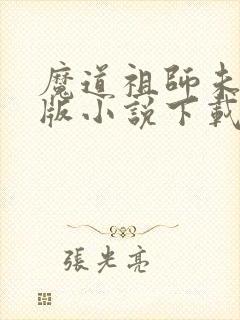 魔道祖師未
版小說下載
張光亮